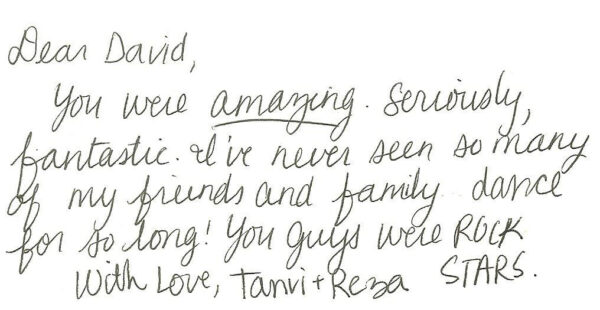 Dear David,
You were amazing. Seriously,
fantastic. I've never seen so many
of my friends and family dance
for so long! You guys were ROCK
STARS.
With Love, Tanvi + Reza